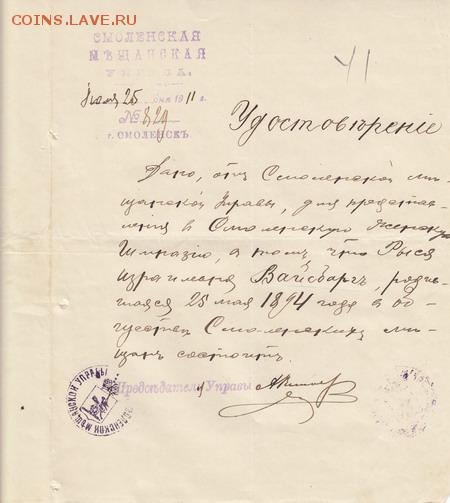 COINS.LAVE.RU
СМОЛЕНСКАЯ
МѢЩАНСКАЯ
УПРАВА.
Июля 25 дня 1911 г.
№ 829
г. СМОЛЕНСКЪ
41
Удостовѣреніе
Дано, отъ Смоленской мѣ-
щанской Управы, для представ-
ленія въ Смоленскую женскую
Гимназію, въ томъ, что Рыся
Израилевна Вайсбергъ, родив-
шаяся 25 мая 1894 года въ об-
ществѣ Смоленскихъ мѣ-
щанъ состоитъ.
Предсѣдатель Управы
СМОЛЕНСКОЙ МѢЩАНСКОЙ УПРАВЫ